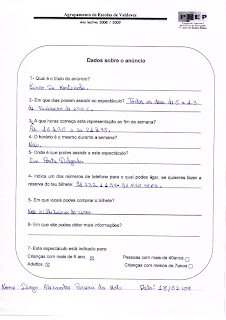 Agrupamento de Escolas de Valdevez
Ano lectivo 2008 / 2009
PNEP
Dados sobre o anúncio
1- Qual é o título do anúncio?
2- Em que dias podem assistir ao espectáculo? Todos os dias de 5 a 13
de Fevereiro de
3- A que horas começa esta representação ao fim de semana?
Às 16h30 e às 21h45.
4- O horário é o mesmo durante a semana?
Não.
5- Onde é que podes assistir a este espectáculo?
Em Ponta Delgada.
4- Indica um dos números de telefone para o qual podes ligar, se quiseres fazer a
reserva do teu bilhete.
5- Em que locais podes comprar o bilhete?
Nas bilheteiras do
6- Em que site podes obter mais informações?
7- Este espectáculo está indicado para:
Crianças com mais de 6 ano. Pessoas com mais de 40anos
Adultos. Crianças com menos de 7anos
Nome: Diogo Alexandre Pereira da Data: 18/02/09